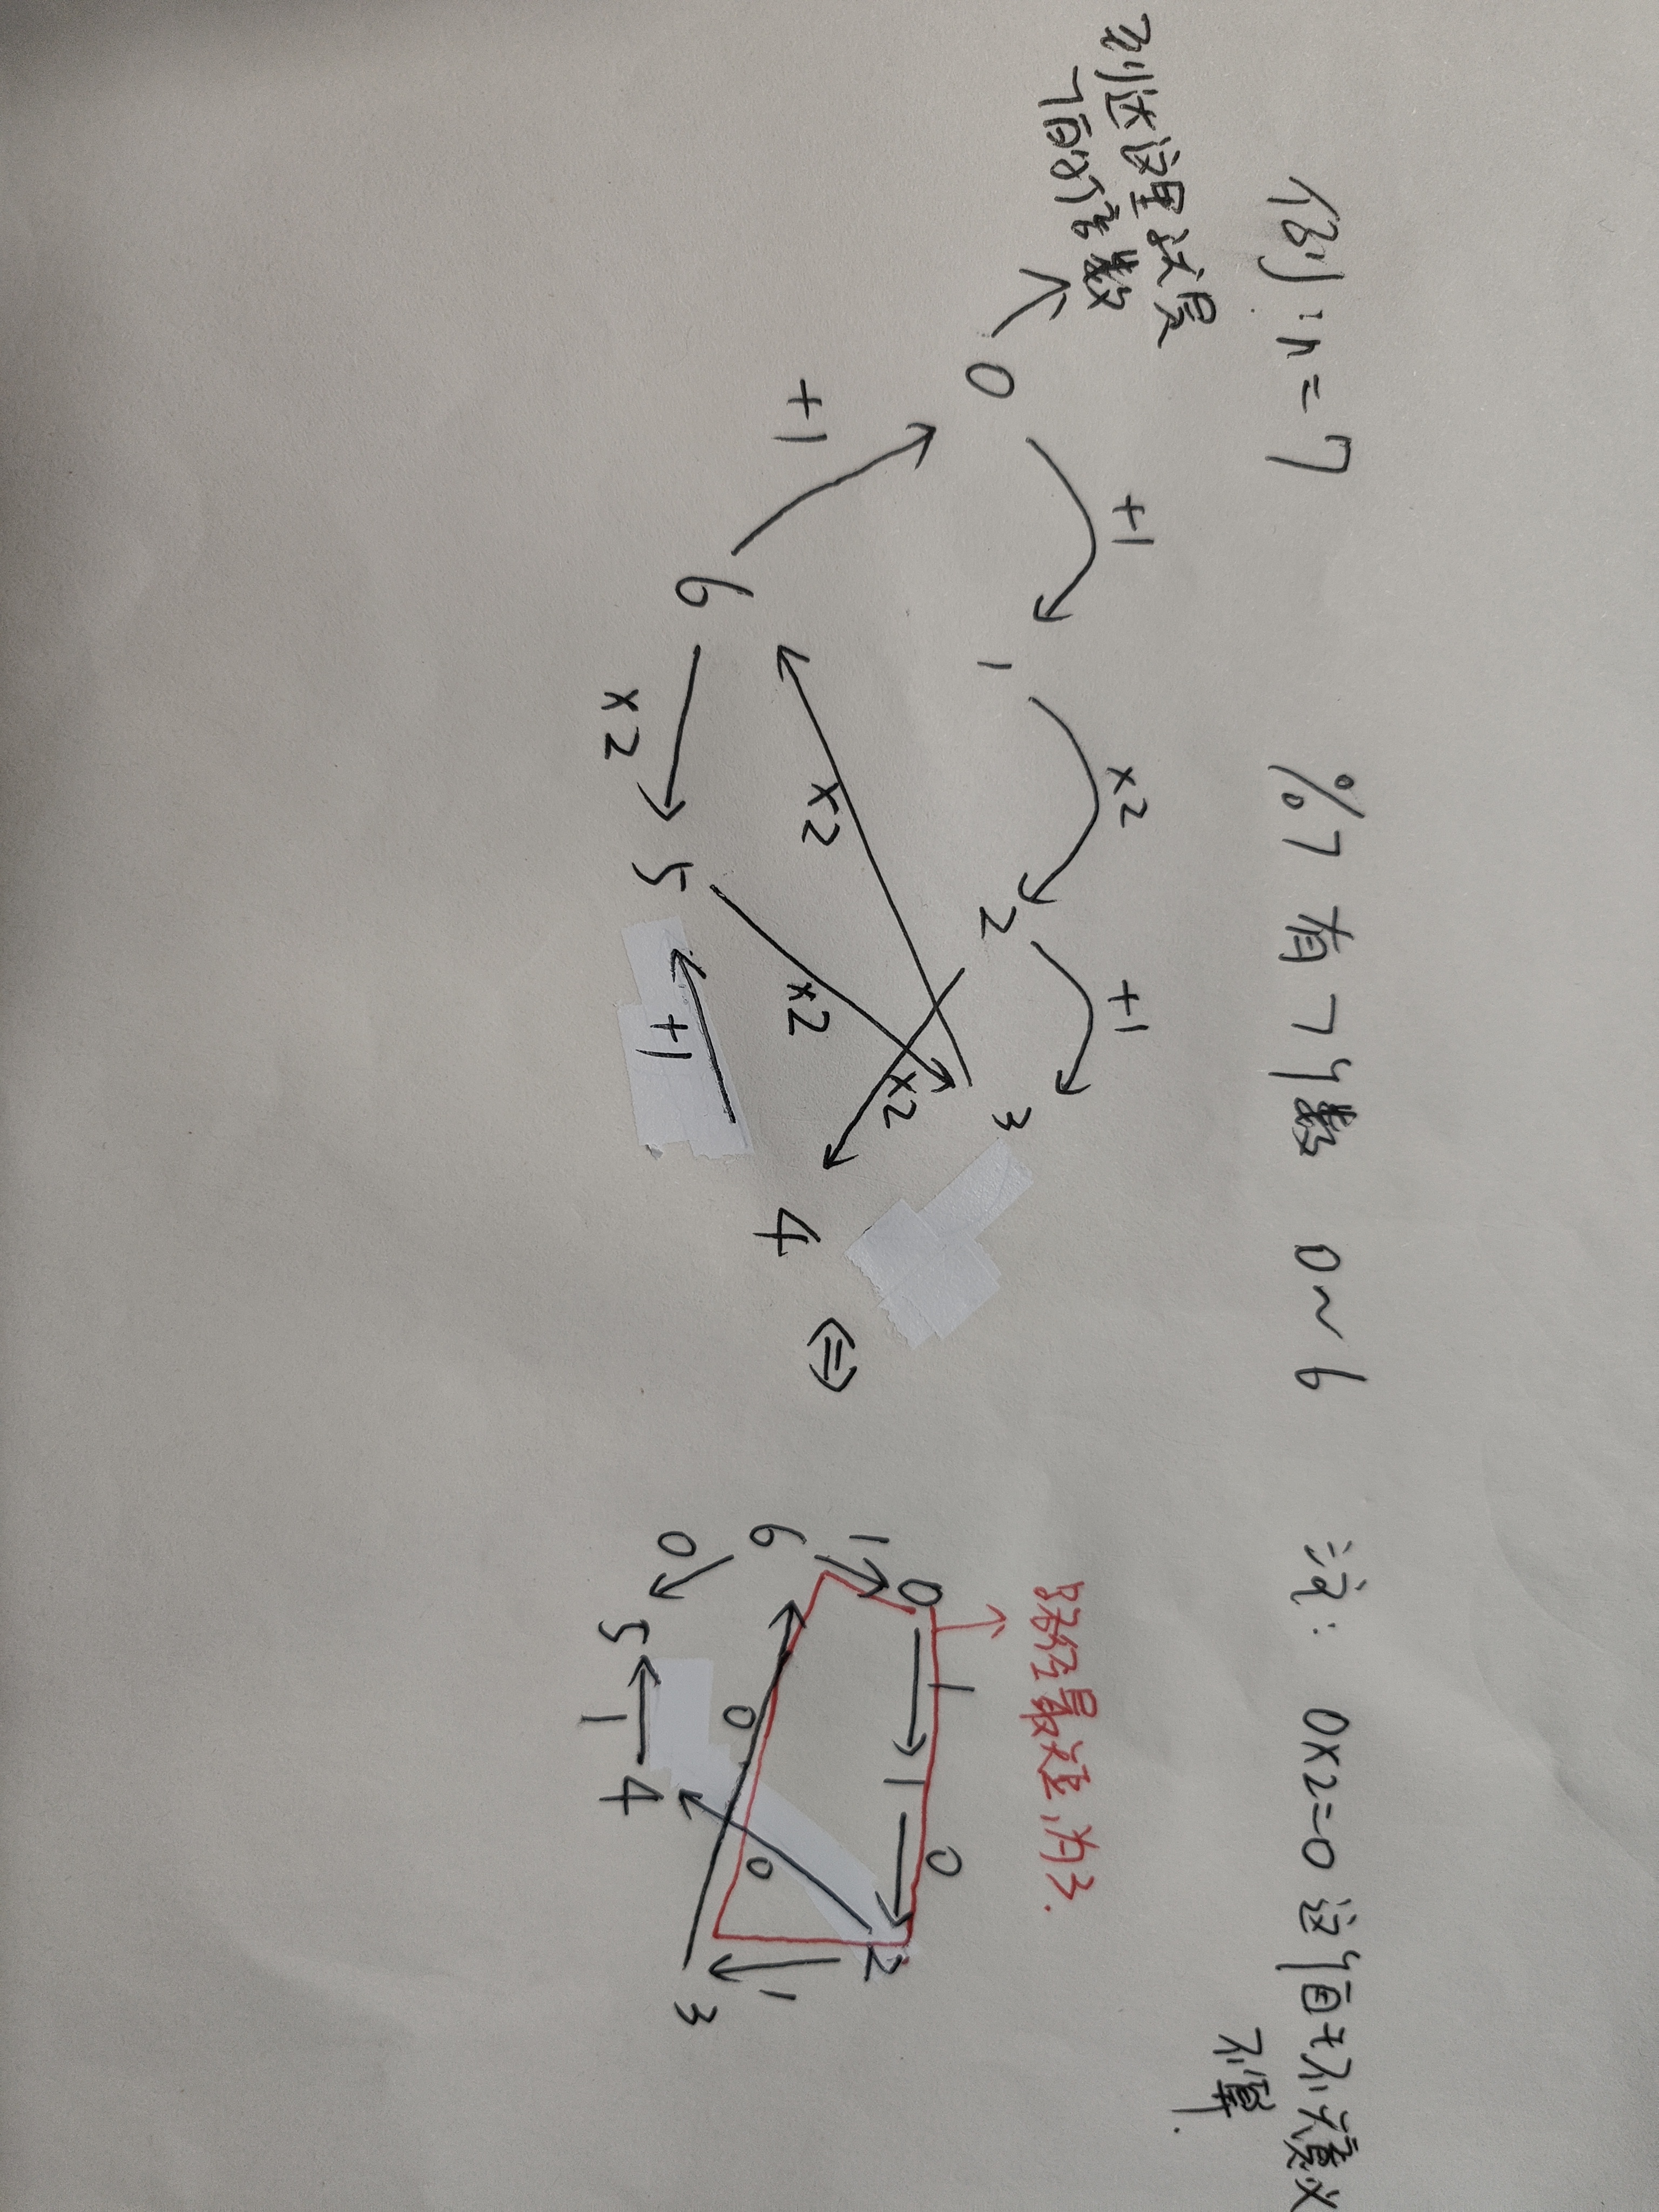 例:n=7
%7 有7个数 0~6
注: 0×2=0 这个自+不 意义
不算.
到达这里就是
7的倍数
+1
×2
+1
0
1
2
3
×2
×2
×2
+1
4
6
5
×2
+1
⇔
路径最短,为3.
1
0
0
1
2
1
6
0
0
1
3
0
5
4
1